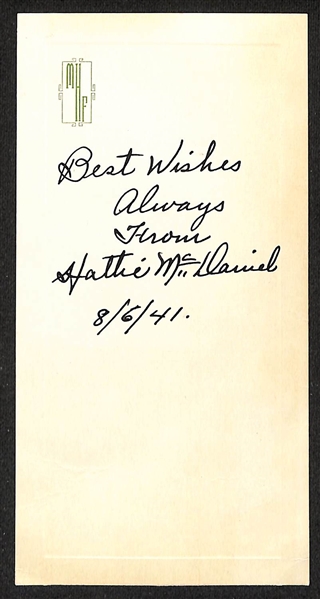 MHF
Best Wishes
Always
From
Hattie McDaniel
8/6/41.